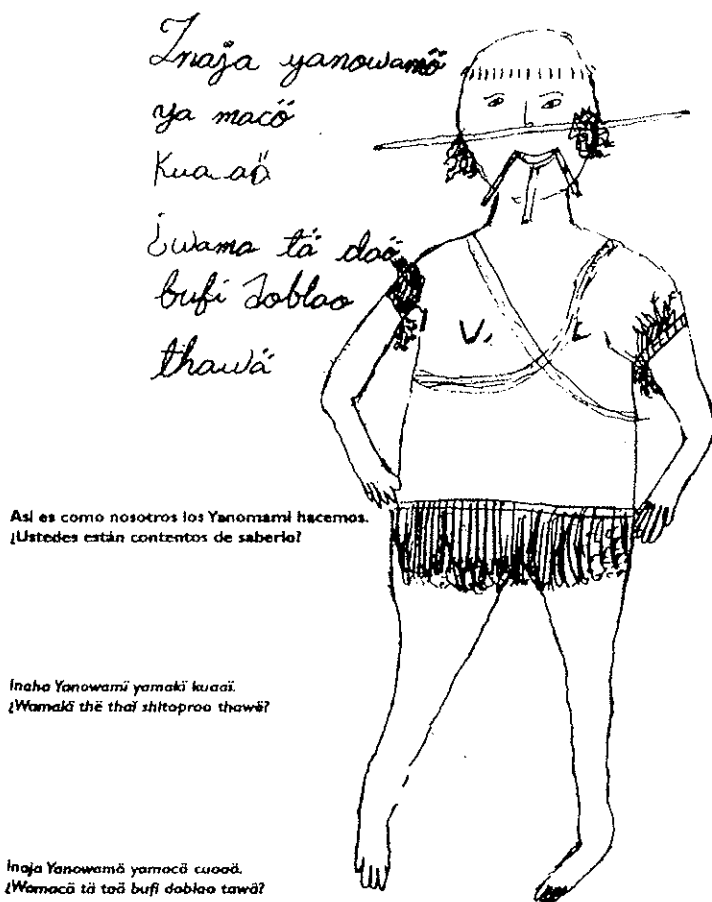 Inaja yanowamö
ya macö
Kua aö
¿wama tä daö
bufi Joblao
thawä
Así es como nosotros los Yanomami hacemos.
¿Ustedes están contentos de saberlo?
Inaha Yanowamï yamakï kuaaï.
¿Wamakï thë thaï shitoproo thawë?
Inaja Yanowamö yamacö cuaaö.
¿Wamacö tä taö bufi doblao tawä?